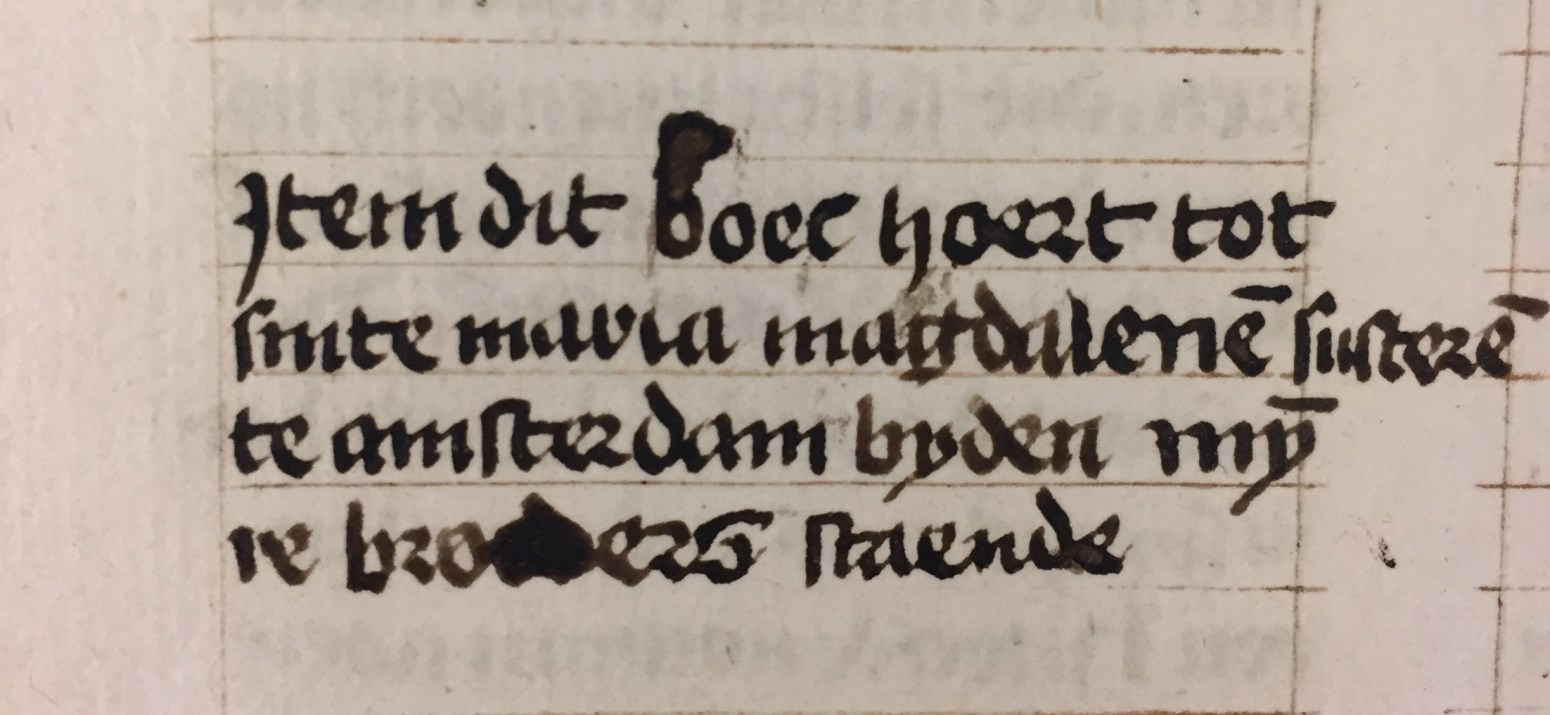 Item dit boec hoert tot
sinte maria magdalenē susterē
te amsterdam byden mȳ
re broders staende